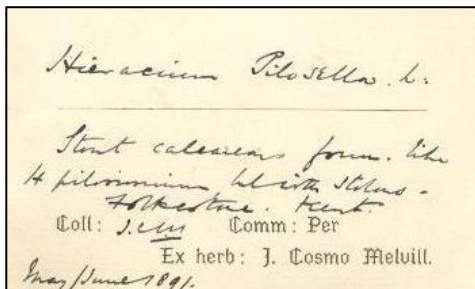 Hieracium Pilosella. L:
Stout calcareous form. like
H pilosissimum but with stolons -
Folkestone. Kent.
Coll: J.C.M Comm: Per
Ex herb: J. Cosmo Melvill.
May/June 1891.